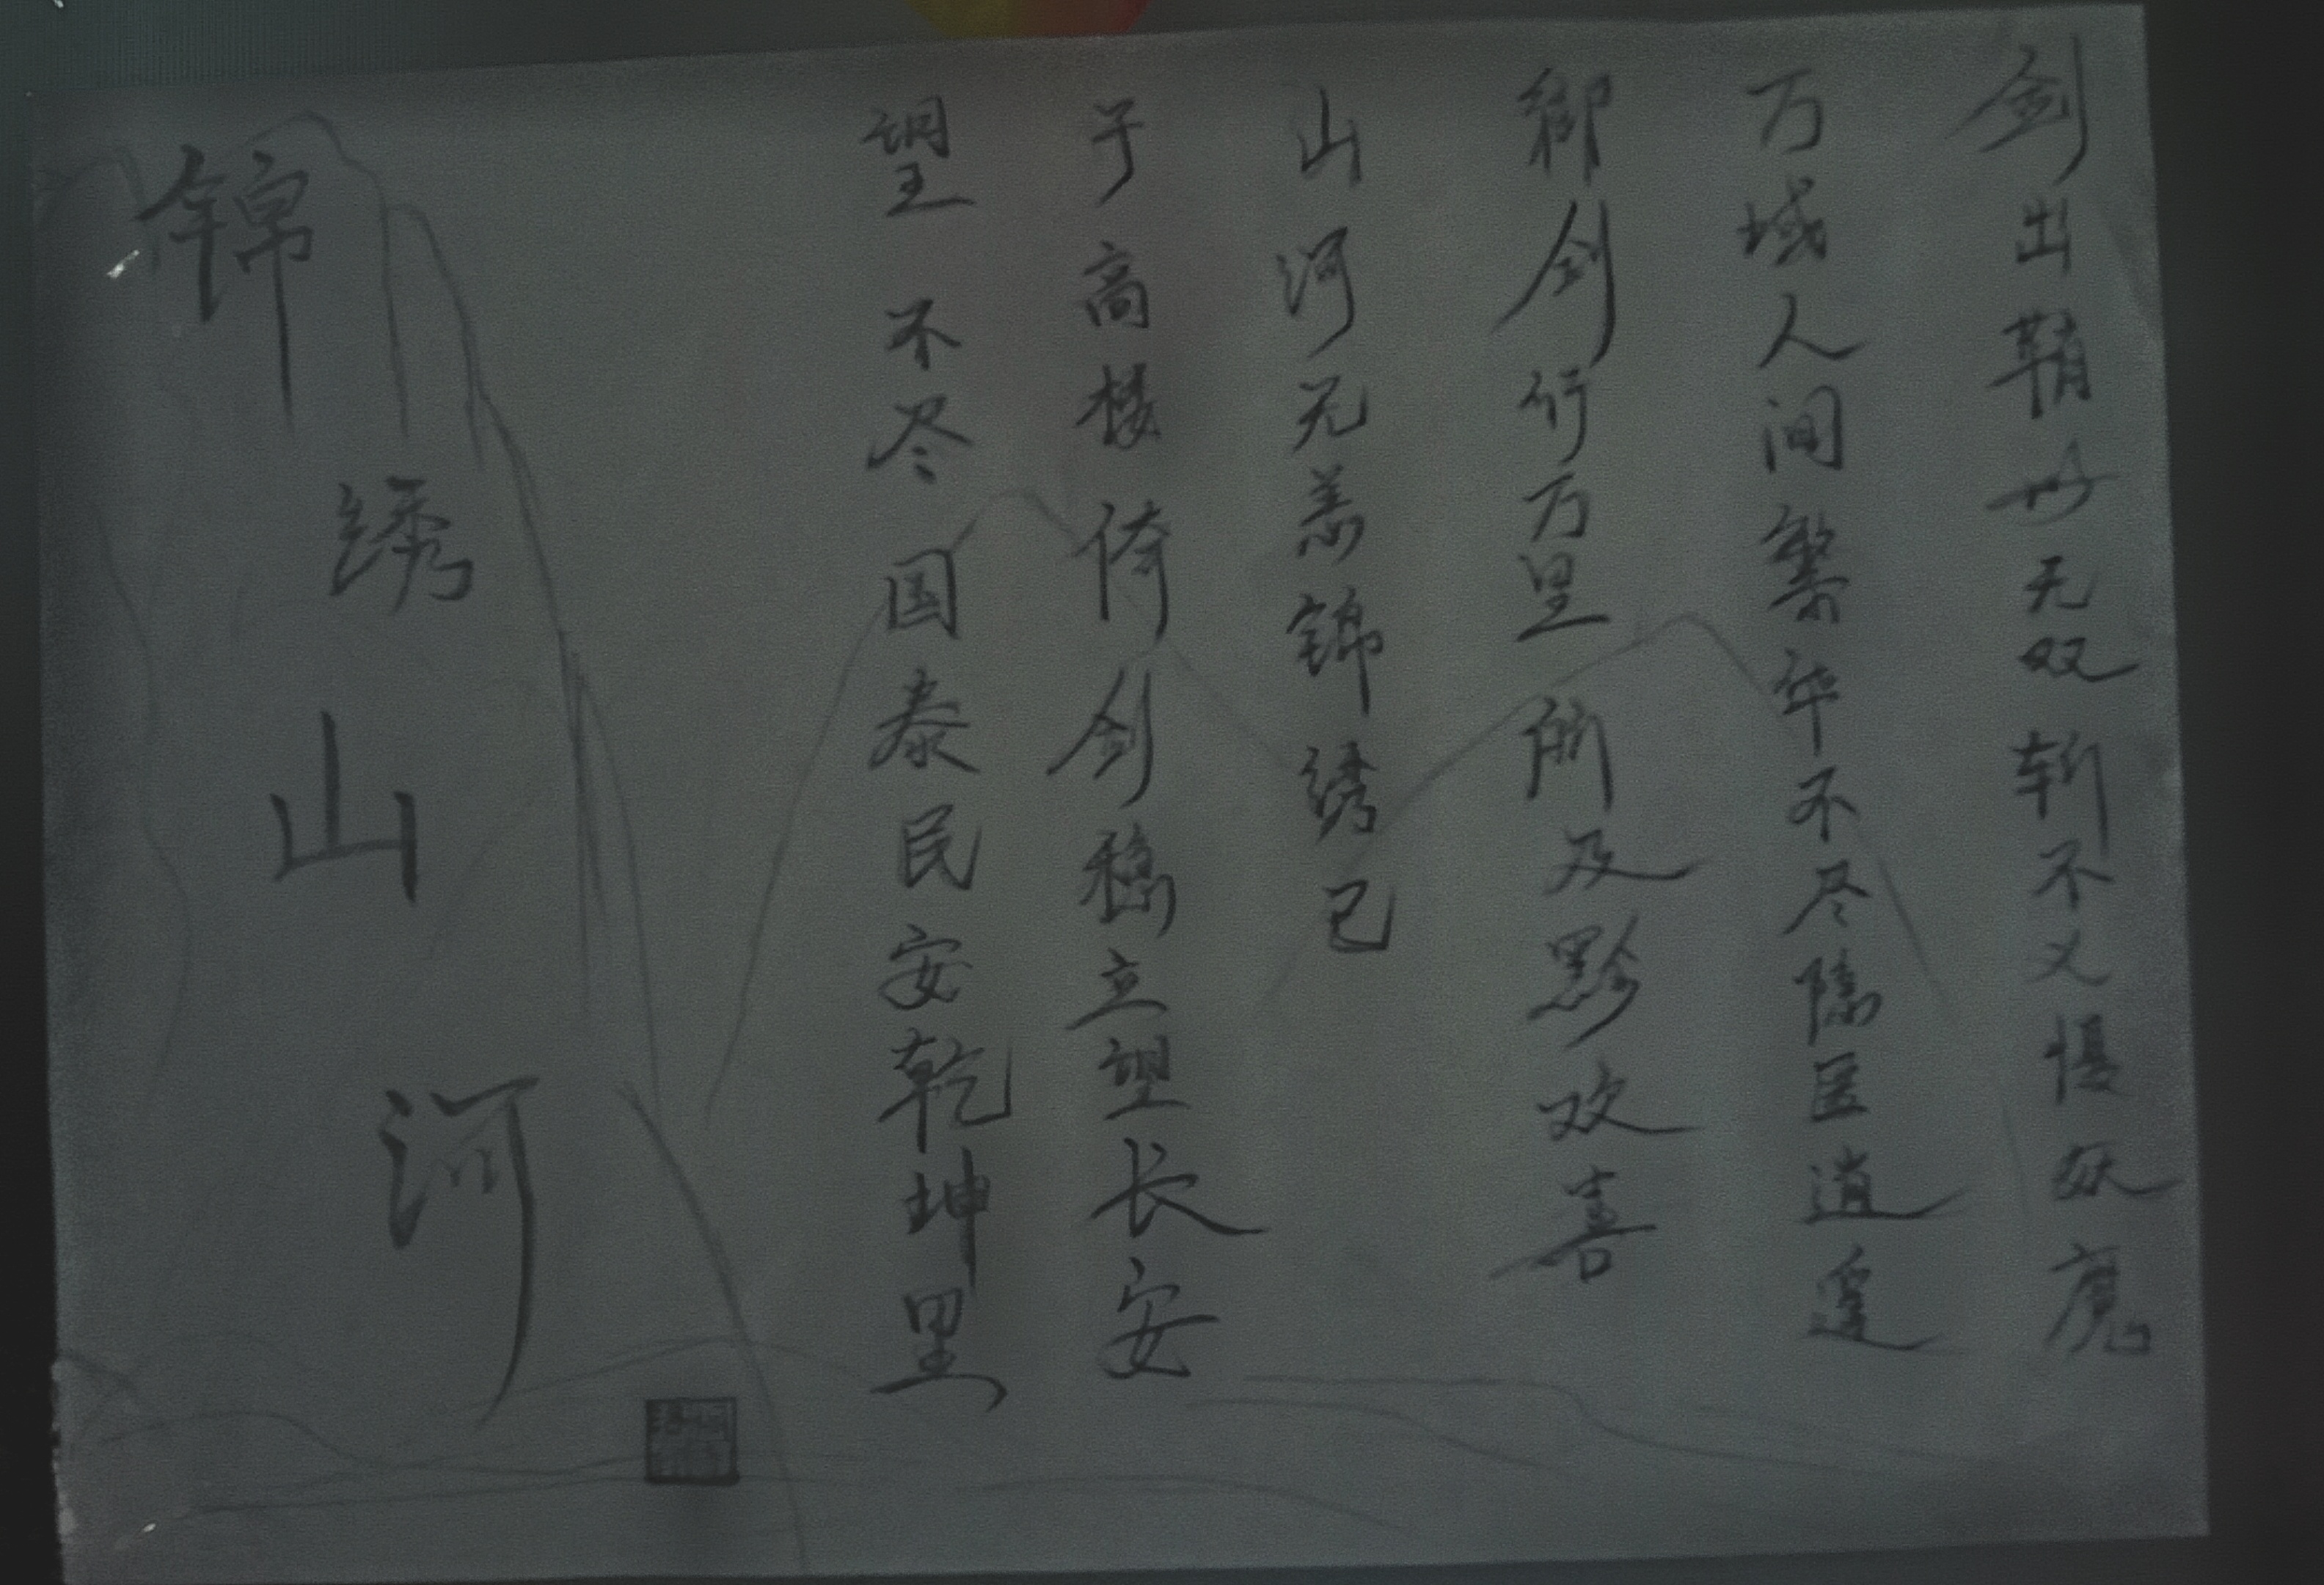 剑出鞘世无双斩不义慑妖魔
万域人间繁华不尽随医逍遥
御剑行万里所及黟欢喜
山河无恙锦绣已
于高楼倚剑稳立望长安
望不尽国泰民安乾坤里
锦绣山河